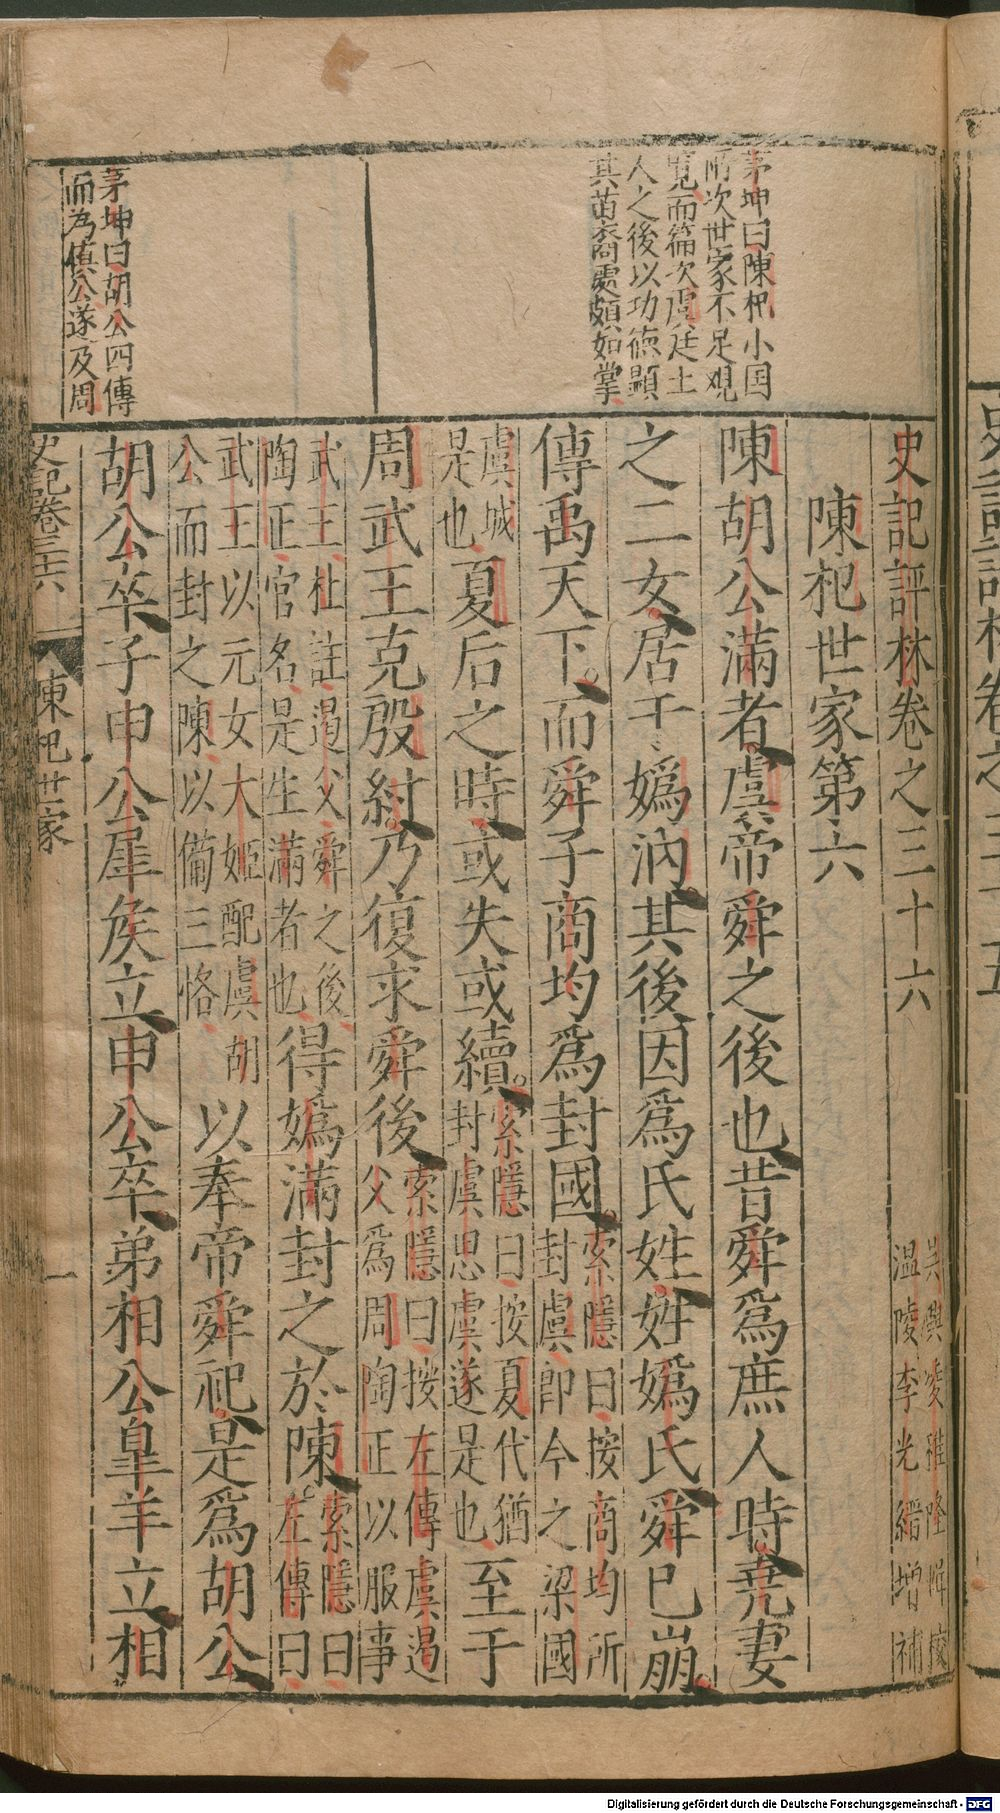 茅坤曰陳杞小国
附次世家不足观
覧而篇次虞廷土
人之後以功德顯
其苗裔處頗如掌
茅坤曰胡公四傳
而為慎公遂及周
史記評林卷之三十六
吳興凌稚隆輯校
温陵李光縉增補
陳杞世家第六
陳胡公滿者虞帝舜之後也昔舜爲庶人時堯妻
之二女居于嬀汭其後因爲氏姓姓嬀氏舜已崩
傳禹天下而舜子商均爲封國
索隱曰按商均所
封虞即今之梁國
虞城
是也
夏后之時或失或續
索隱曰按夏代猶
封虞思虞遂是也
至于
周武王克殷紂乃復求舜後
索隱曰按左傳虞遏
父爲周陶正以服事
武王杜註遏父舜之後
陶正官名是生滿者也
得嬀滿封之於陳
索隱曰
左傳曰
武王以元女大姬配虞胡
公而封之陳以備三恪
以奉帝舜祀是爲胡公
胡公卒子申公犀矦立申公卒弟相公皐羊立相
史記卷三十六
陳杞世家
一
Digitalisierung gefördert durch die Deutsche Forschungsgemeinschaft - DFG